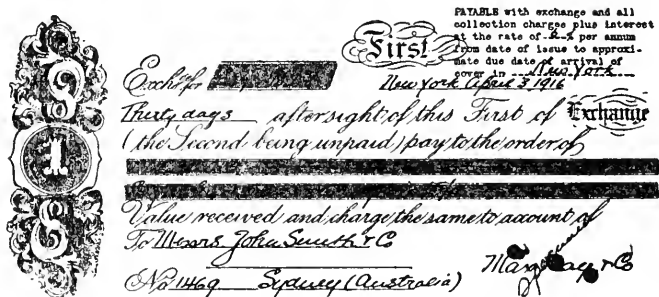 PAYABLE with exchange and all
collection charges plus interest
at the rate of % per annum
from date of issue to approxi-
mate due date of arrival of
cover in New York
First
Exch: for
New York April 3 1916
Thirty days after sight of this First of Exchange
(the Second being unpaid) pay to the order of
Value received and charge the same to account of
To Messrs John Smith & Co
No 1469 Sydney (Australia)
& Co
1